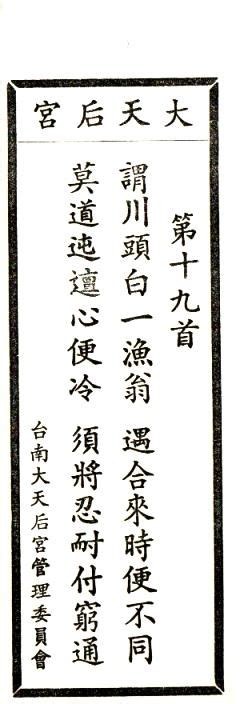 大天后宮
第十九首
謂川頭白一漁翁　遇合來時便不同
莫道迍邅心便冷　須將忍耐付窮通
台南大天后宮管理委員會